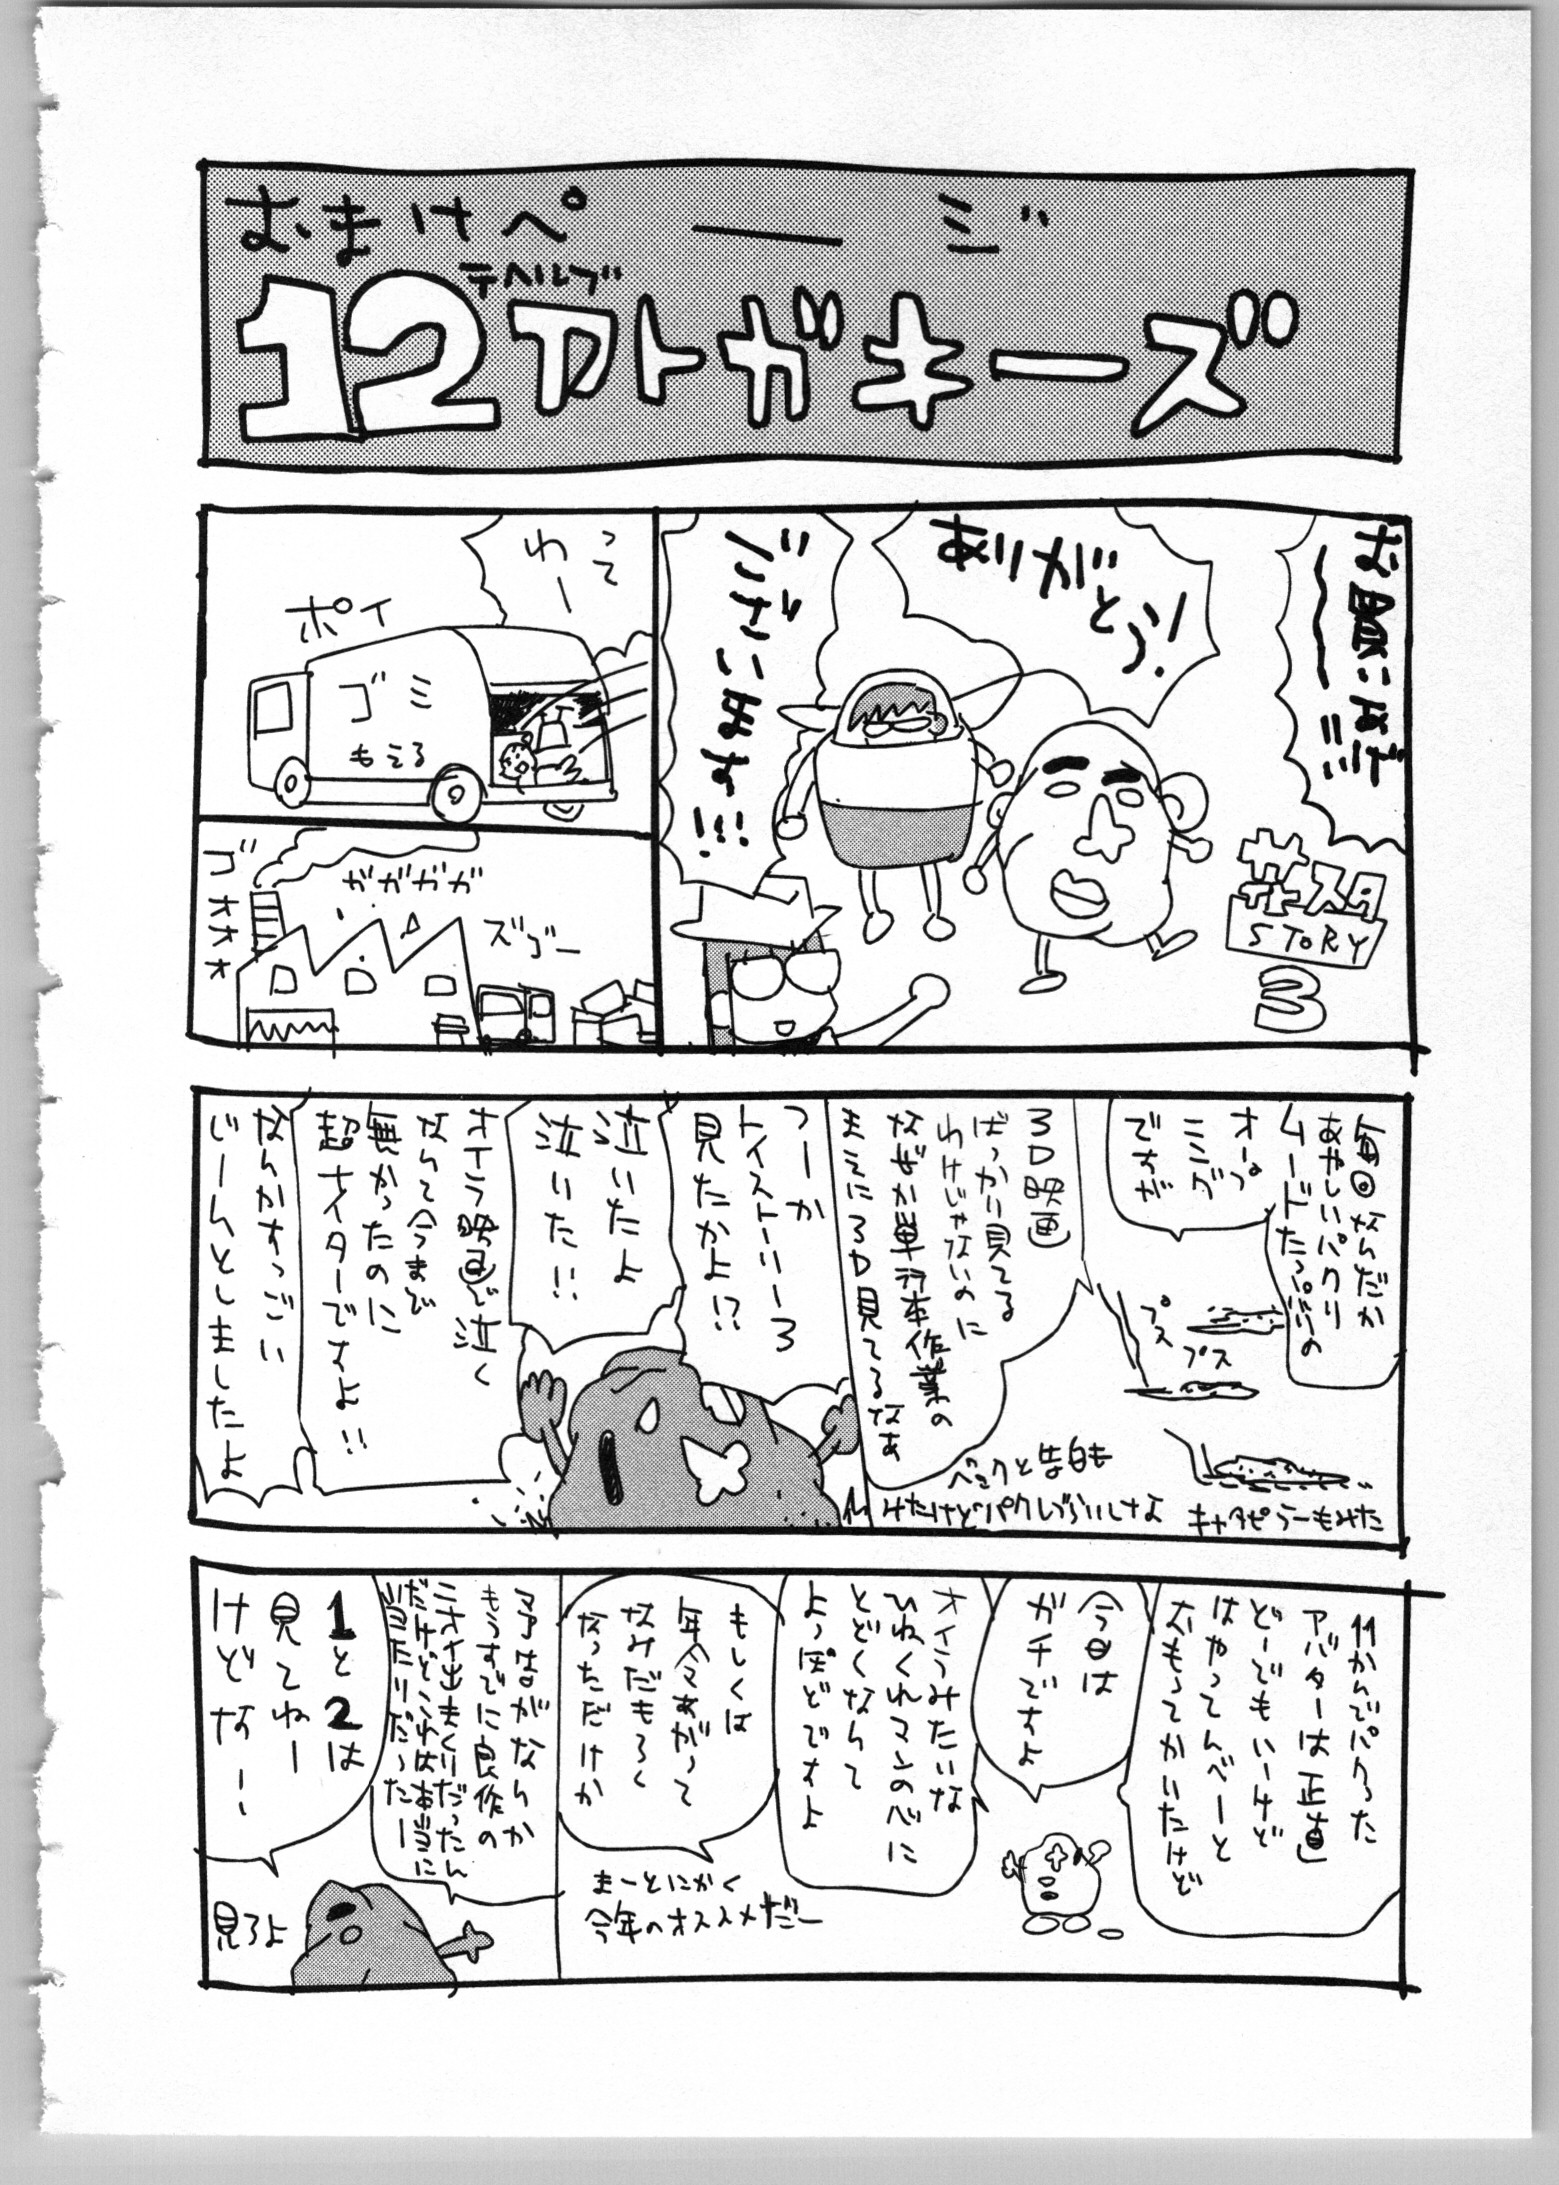 おまけページ
テヘルブ
12アトガキーズ
お助ニバデ
ありがとう!
ございます!!!
サースタ
STORY
3
って
わー
ポイ
ゴミ
もえる
ゴオオオ
ガガガガ
ズゴー
毎回なんだか
あやしいパクリ
ムードたっぷりの
オープ
ニング
ですが
プス
プス
キャタピラーもみた
3D映画
ばっかり見てる
わけじゃないのに
なぜか単行本作業の
まえに3D見てるなあ
ベックと告白も
みたけどパクしづらいしなよ
つーか
トイストーリー3
見たかよ!?
泣いたよ
泣いた!!
オイラ映画で泣く
なんて今まで
無かったのに
超ナイターですよ!!
なんかすっごい
じーんとしましたよ
11かんでパクった
アバターは正直
どーでもいーけど
はやってんべーと
おもってかいたけど
今回は
ガチですよ
オイラみたいな
ひねくれマンの心に
とどくなんて
よっぽどですよ
もしくは
年令あがって
なみだもろく
なっただけか
まーとにかく
今年のオススメだー
アアはがなんか
もうすでに良作の
ニオイ出まくりだったん
だけどこれは本当に
当たりだったー
1と2は
見てねー
けどなー
見ろよ